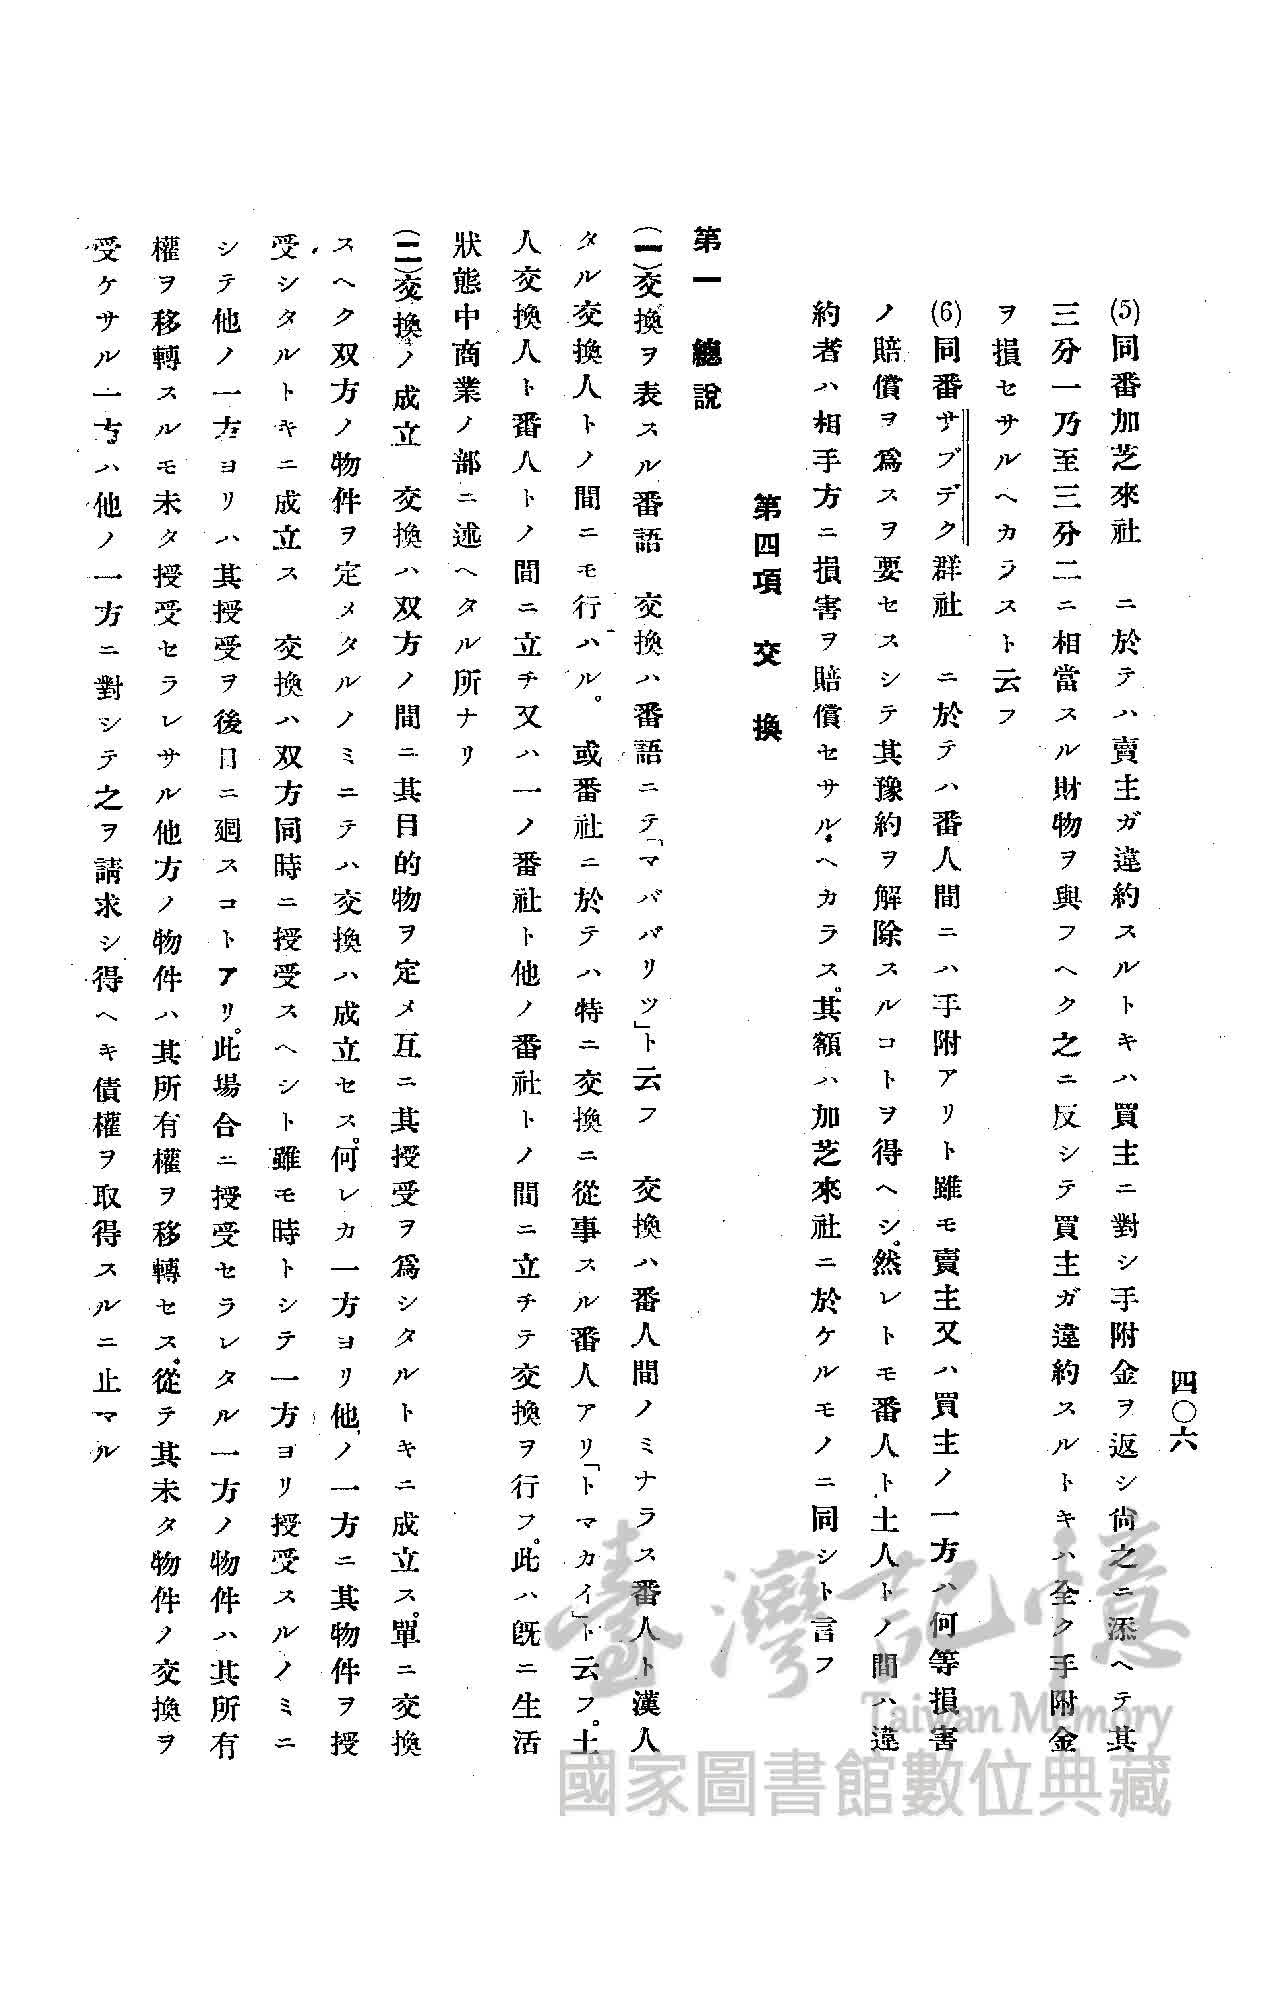 四〇六
(5)同番加芝來社　ニ於テハ賣主ガ違約スルトキハ買主ニ對シ手附金ヲ返シ尙之ニ添ヘテ其
三分一乃至三分二ニ相當スル財物ヲ與フヘク之ニ反シテ買主ガ違約スルトキハ全ク手附金
ヲ損セサルヘカラスト云フ
(6)同番サブデク群社　ニ於テハ番人間ニハ手附アリト雖モ賣主又ハ買主ノ一方ハ何等損害
ノ賠償ヲ爲スヲ要セスシテ其豫約ヲ解除スルコトヲ得ヘシ。然レトモ番人ト土人トノ間ハ違
約者ハ相手方ニ損害ヲ賠償セサルヘカラス。其額ハ加芝來社ニ於ケルモノニ同シト言フ
第四項　交　換
第一　總說
(一)交換ヲ表スル番語　交換ハ番語ニテ「マババリツ」ト云フ　交換ハ番人間ノミナラス番人ト漢人
タル交換人トノ間ニモ行ハル。　或番社ニ於テハ特ニ交換ニ從事スル番人アリ「トマカイ」ト云フ。土
人交換人ト番人トノ間ニ立チ又ハ一ノ番社ト他ノ番社トノ間ニ立チテ交換ヲ行フ。此ハ旣ニ生活
狀態中商業ノ部ニ述ヘタル所ナリ
(二)交換ノ成立　交換ハ双方ノ間ニ其目的物ヲ定メ互ニ其授受ヲ爲シタルトキニ成立ス。單ニ交換
スヘク双方ノ物件ヲ定メタルノミニテハ交換ハ成立セス。何レカ一方ヨリ他ノ一方ニ其物件ヲ授
受シタルトキニ成立ス　交換ハ双方同時ニ授受スヘシト雖モ時トシテ一方ヨリ授受スルノミニ
シテ他ノ一方ヨリハ其授受ヲ後日ニ廻スコトアリ。此場合ニ授受セラレタル一方ノ物件ハ其所有
權ヲ移轉スルモ未タ授受セラレサル他方ノ物件ハ其所有權ヲ移轉セス。從テ其未タ物件ノ交換ヲ
受ケサル一方ハ他ノ一方ニ對シテ之ヲ請求シ得ヘキ債權ヲ取得スルニ止マル
臺灣記憶
Taiwan Memory
國家圖書館數位典藏